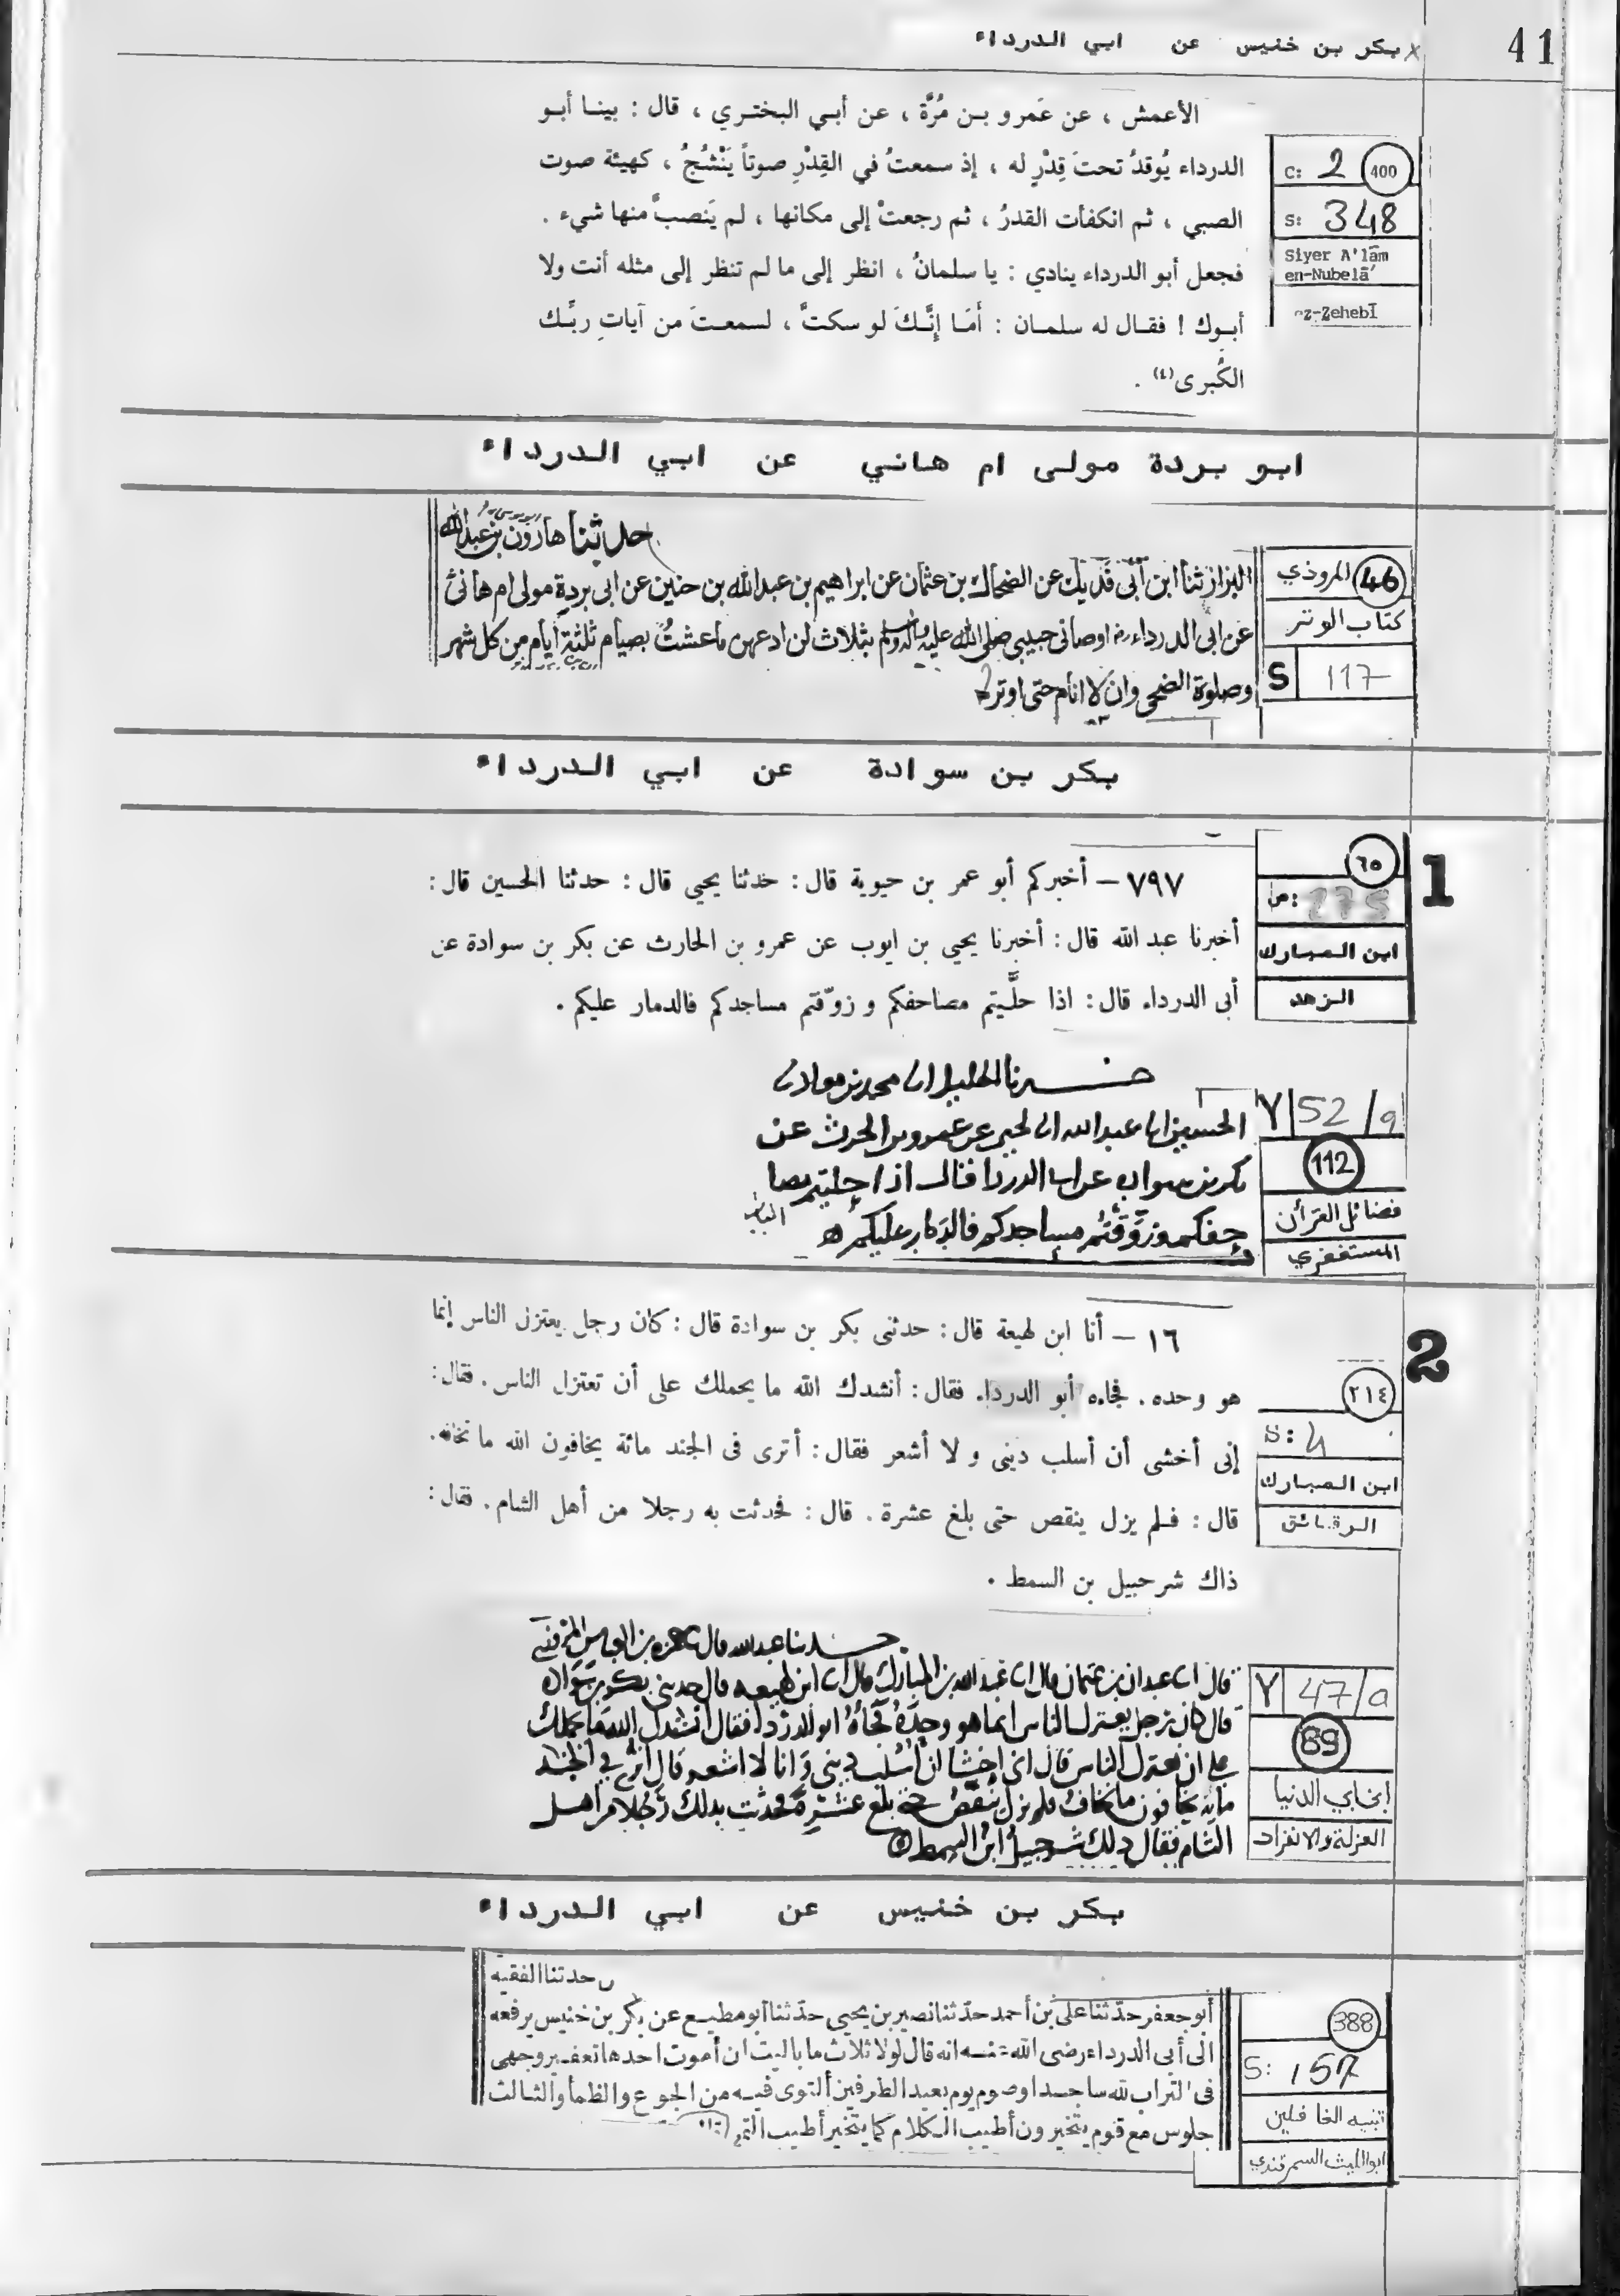 41
× بكر بن خنيس عن ابي الدرداء
الأعمش ، عن عَمرو بن مُرَّة ، عن أبي البختري ، قال : بينا أبو
الدرداء يُوقدُ تحتَ قِدْرٍ له ، إذ سمعتُ في القِدْرِ صوتاً يَنْشُجُ ، كهيئة صوت
الصبي ، ثم انكفأت القدرُ ، ثم رجعتْ إلى مكانها ، لم يَنصبَّ منها شيء .
فجعل أبو الدرداء ينادي : يا سلمانُ ، انظر إلى ما لم تنظر إلى مثله أنت ولا
أبوك ! فقال له سلمان : أمَا إنَّكَ لو سكتَّ ، لسمعتَ من آياتِ ربِّك
الكُبرى(٤) .
C: 2 400
S: 348
Siyer A'lām
en-Nubelā'
ez-Zehebī
ابو بردة مولى ام هاني عن ابي الدرداء
حدثنا هارون بن عبدالله
البزاز ثنا ابن أبي فديك عن الضحاك بن عثمان عن ابراهيم بن عبد الله بن حنين عن ابي بردة مولى ام هانئ
عن ابي الدرداء رض اوصاني حبيبي صلى الله عليه واله وسلم بثلاث لن ادعهن ما عشتُ بصيام ثلثة ايام من كل شهر
وصلوة الضحى وان لا انام حتى اوتر
46 المروذي
كتاب الوتر
S 117
بكر بن سوادة عن ابي الدرداء
1
٧٩٧ – أخبركم أبو عمر بن حيوية قال : حدثنا يحيي قال : حدثنا الحسين قال :
أخبرنا عبد الله قال : أخبرنا يحيي بن ايوب عن عمرو بن الحارث عن بكر بن سوادة عن
أبى الدرداء قال : اذا حلَّيتم مصاحفكم و زوّقتم مساجدكم فالدمار عليكم .
٦٥
ص: 275
ابن المبارك
الزهد
الحسين انا عبد الله انا يحيى عن عمرو بن الحرث عن
بكر بن سواده عن ابي الدردا قال اذا حليتم مصا
حفكم وزوقتم مساجدكم فالدمار عليكم
Y 52/a
112
فضائل القرآن
المستغفري
2
١٦ – أنا ابن لهيعة قال : حدثنى بكر بن سوادة قال : كان رجل يعتزل الناس إنما
هو وحده . فجاءه أبو الدرداء فقال : أنشدك الله ما يحملك على أن تعتزل الناس . فقال :
إنى أخشى أن أسلب دينى و لا أشعر فقال : أترى فى الجند مائة يخافون الله ما تخافه .
قال : فلم يزل ينقص حتى بلغ عشرة . قال : فحدثت به رجلا من أهل الشام . فقال :
ذاك شرحبيل بن السمط .
٢١٤
S: 4
ابن المبارك
الرقائق
حدثنا عبدالله قال
قال انا عبدان بن عثمان قال انا عبد الله بن المبارك قال انا ابن لهيعه قال حدثني بكر بن سواده
قال كان رجل يعتزل الناس انما هو وحده فجاه ابو الدردا فقال انشدك الله ما يحملك
على ان تعتزل الناس قال اني اخشا ان اسلب ديني وانا لا اشعر قال اترى في الجند
مايه يخافون ما تخاف فلم يزل ينقص حتى بلغ عشرة فحدثت بذلك رجلا من اهل
الشام فقال ذلك شرحبيل ابن السمط
Y 47/a
89
ابن ابي الدنيا
العزلة والانفراد
بكر بن خنيس عن ابي الدرداء
حدثنا الفقيه
أبو جعفر حدّثنا على بن أحمد حدّثنا نصير بن يحيى حدّثنا أبو مطيع عن بكر بن خنيس يرفعه
الى أبى الدرداء رضى الله عنه انه قال لولا ثلاث ما باليت ان أموت احدها تعفير وجهى
فى التراب لله ساجدا وصوم يوم بعيد الطرفين ألتوى فيه من الجوع والظمأ والثالث
جلوس مع قوم يتخيرون أطيب الكلام كما يتخير أطيب التمر
388
S: 157
تنبيه الغافلين
ابو الليث السمرقندي